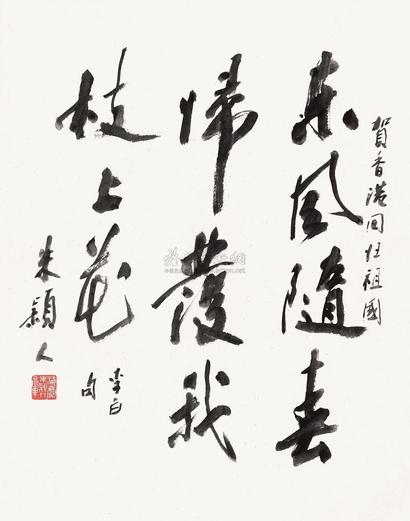 賀香港回归祖國
东风隨春
歸發我
枝上花
李白
句
朱穎人